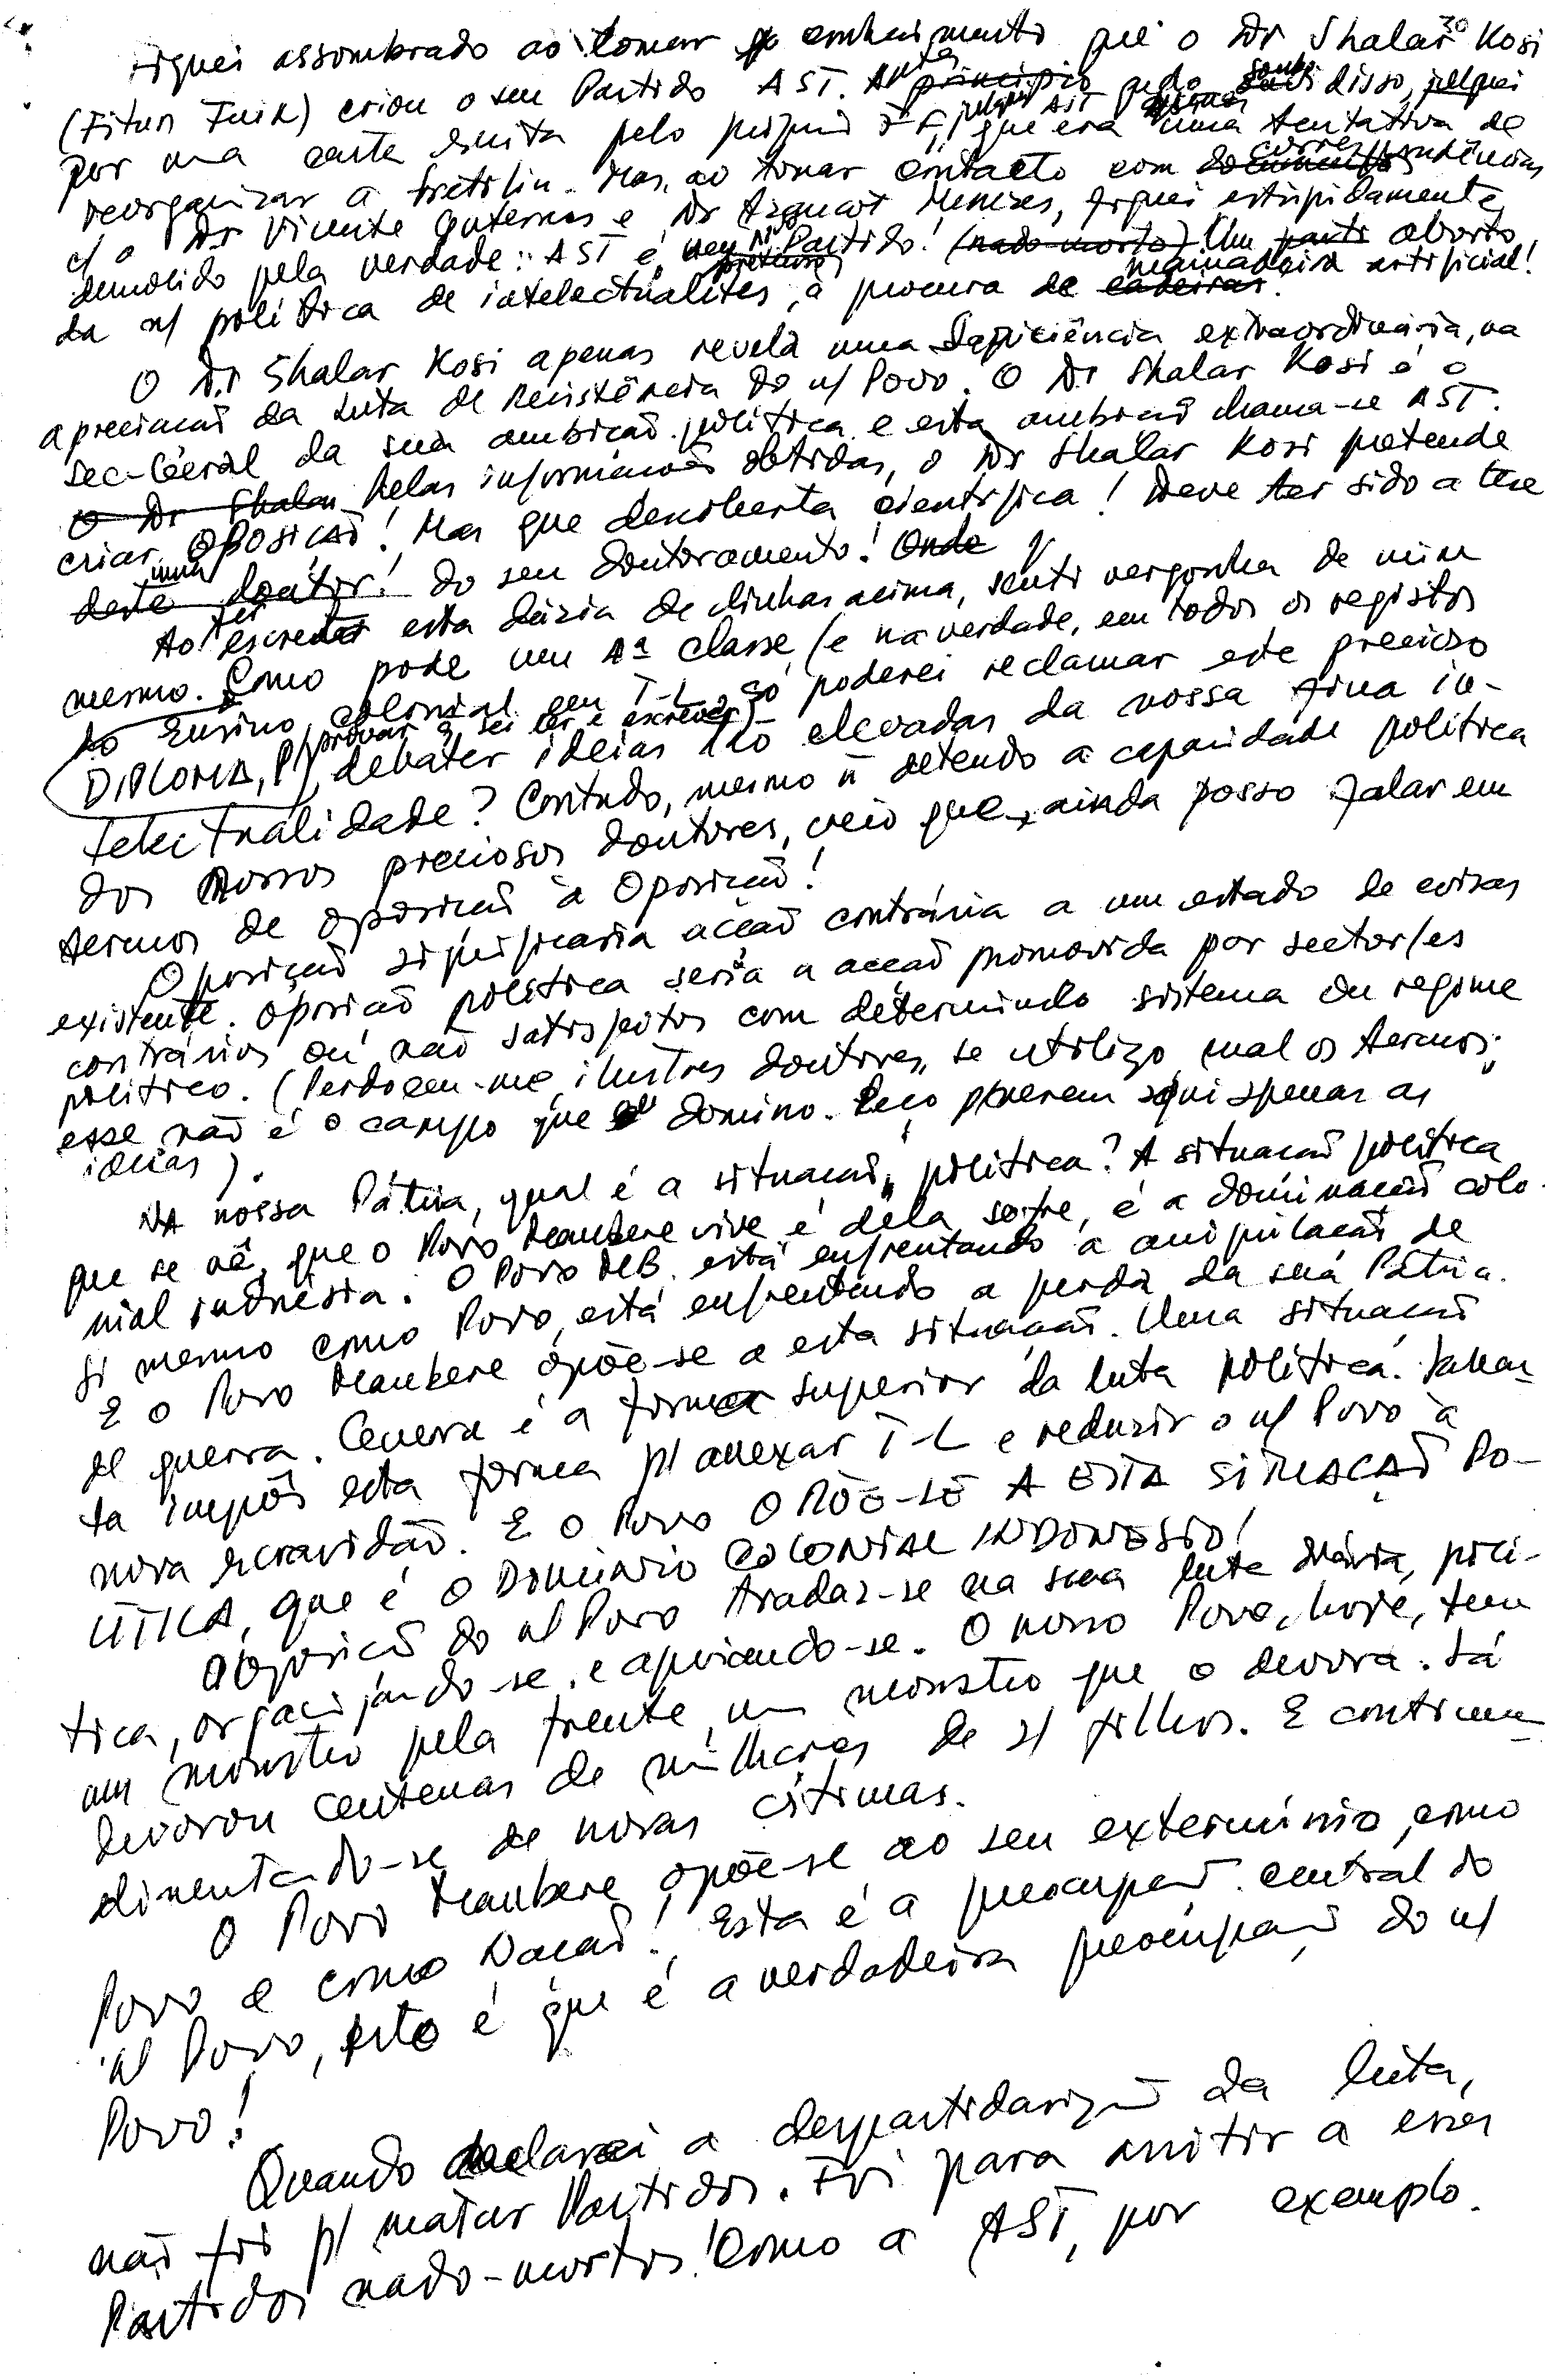 30
Fiquei assombrado ao tomar conhecimento que o Dr Shalar Kosi
(Fitun Fuik) criou o seu Partido AST. Antes princípio sonho disso, julguei
por uma carta escrita pelo próprio FF, julguei AST que era uma tentativa de
reorganizar a Fretilin. Mas, ao tomar contacto com documentos correspondências
c/ o Dr Vicente Guterres e Dr Menezes, fiquei estupidamente
demolido pela verdade: AST é um novo Partido! (nado-morto) Um parti aborto
da n/ política de intelectualites pretensos, à procura de cadeiras. mamadeira artificial!
O Dr Shalar Kosi apenas revela uma extraordinária, na
apreciação da Luta de Resistência do n/ Povo. O Dr Shalar Kosi é o
Sec-Geral da sua ambição política e esta ambição chama-se AST.
O Dr Shalar Pelas informações obtidas, o Dr Shalar Kosi pretende
criar uma OPOSIÇÃO! Mas que descoberta científica! Deve ter sido a tese
deste doutor! do seu doutoramento! Onde
Ao ter escrever esta dúzia de linhas acima, senti vergonha de mim
mesmo. Como pode um 4ª classe (e na verdade, em todos os registos
do Ensino colonial em T-L, só poderei reclamar este precioso
DIPLOMA, p/ provar q sei ler e escrever) debater ideias tão elevadas da nossa fina in-
telectualidade? Contudo, mesmo ñ detendo a capacidade política
dos nossos preciosos doutores, creio que, ainda posso falar em
termos de oposição à Oposição!
Oposição significaria acção contrária a um estado de coisas
existente. Oposição política seria a acção promovida por sector/es
contrários ou não satisfeitos com determinado sistema ou regime
político. (Perdoem-me, ilustres doutores, se utilizo mal os termos;
esse não é o campo que eu domino. Peço aqui apenas as
ideias).
Na nossa Pátria, qual é a situação política? A situação política
que se vê, que o Povo Maubere vive e dela sofre, é a dominação colo-
nial indonésia. O Povo MB. está enfrentando a aniquilação de
si mesmo como Povo, está enfrentando a perda da sua Pátria.
E o Povo Maubere opõe-se a esta situação. Uma situação
de guerra. Guerra é a forma superior da luta política. Jakar-
ta impôs esta forma p/ anexar T-L e reduzir o n/ Povo à
nova escravidão. E o Povo OPÕE-SE A ESTA SITUAÇÃO PO-
LÍTICA, que é o DOMÍNIO COLONIAL INDONÉSIO!
A oposição do n/ Povo traduz-se na sua luta diária, polí-
tica, organizando-se e apoiando-se. O nosso Povo, hoje, tem
um monstro pela frente, um monstro que o devora. Já
devorou centenas de milhares de s/ filhos. E continua
alimentando-se de novas vítimas.
O Povo Maubere opõe-se ao seu extermínio, como
Povo e como Nação! Esta é a preocupação central do
n/ Povo, isto é que é a verdadeira preocupação do n/
Povo!
Quando declarei a despartidarização da luta,
não foi p/ matar Partidos. Foi para evitar a esses
Partidos nado-mortos! Como a AST, por exemplo.